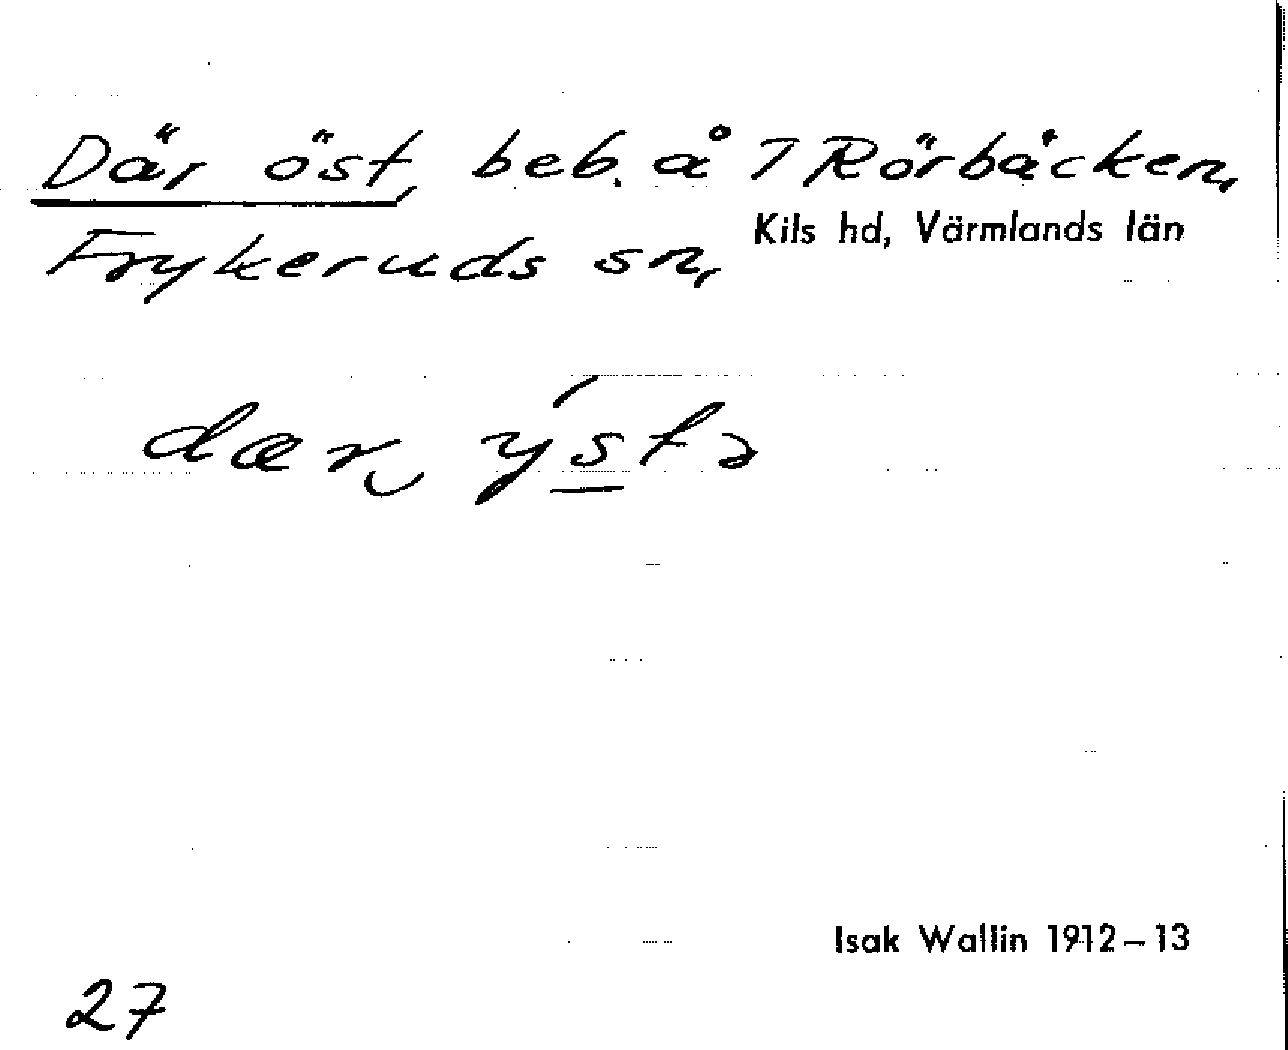 Där öst, beb. å 7 Rörbäcken,
Kils hd, Värmlands län
Frykeruds sn,
Isak Wallin 1912–13
27